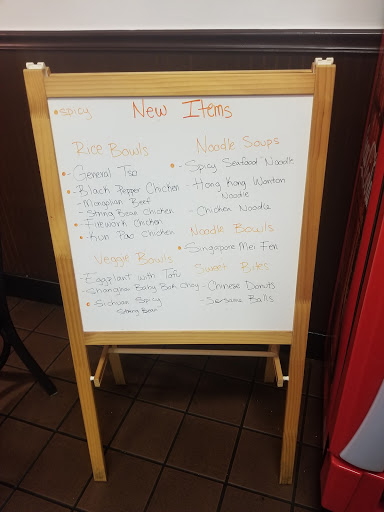 • Spicy
New Items
Rice Bowls
• - General Tso
• - Black Pepper Chicken
- Mongolian Beef
- String Bean Chicken
• - Firework Chicken
• - Kun Pao Chicken
Veggie Bowls
- Eggplant with Tofu
- Shanghai Baby Bok Choy
• - Sichuan Spicy
String Bean
Noodle Soups
• - Spicy Seafood Noodle
- Hong Kong Wonton
Noodle
- Chicken Noodle
Noodle Bowls
• - Singapore Mei Fen
Sweet Bites
- Chinese Donuts
- Sesame Balls